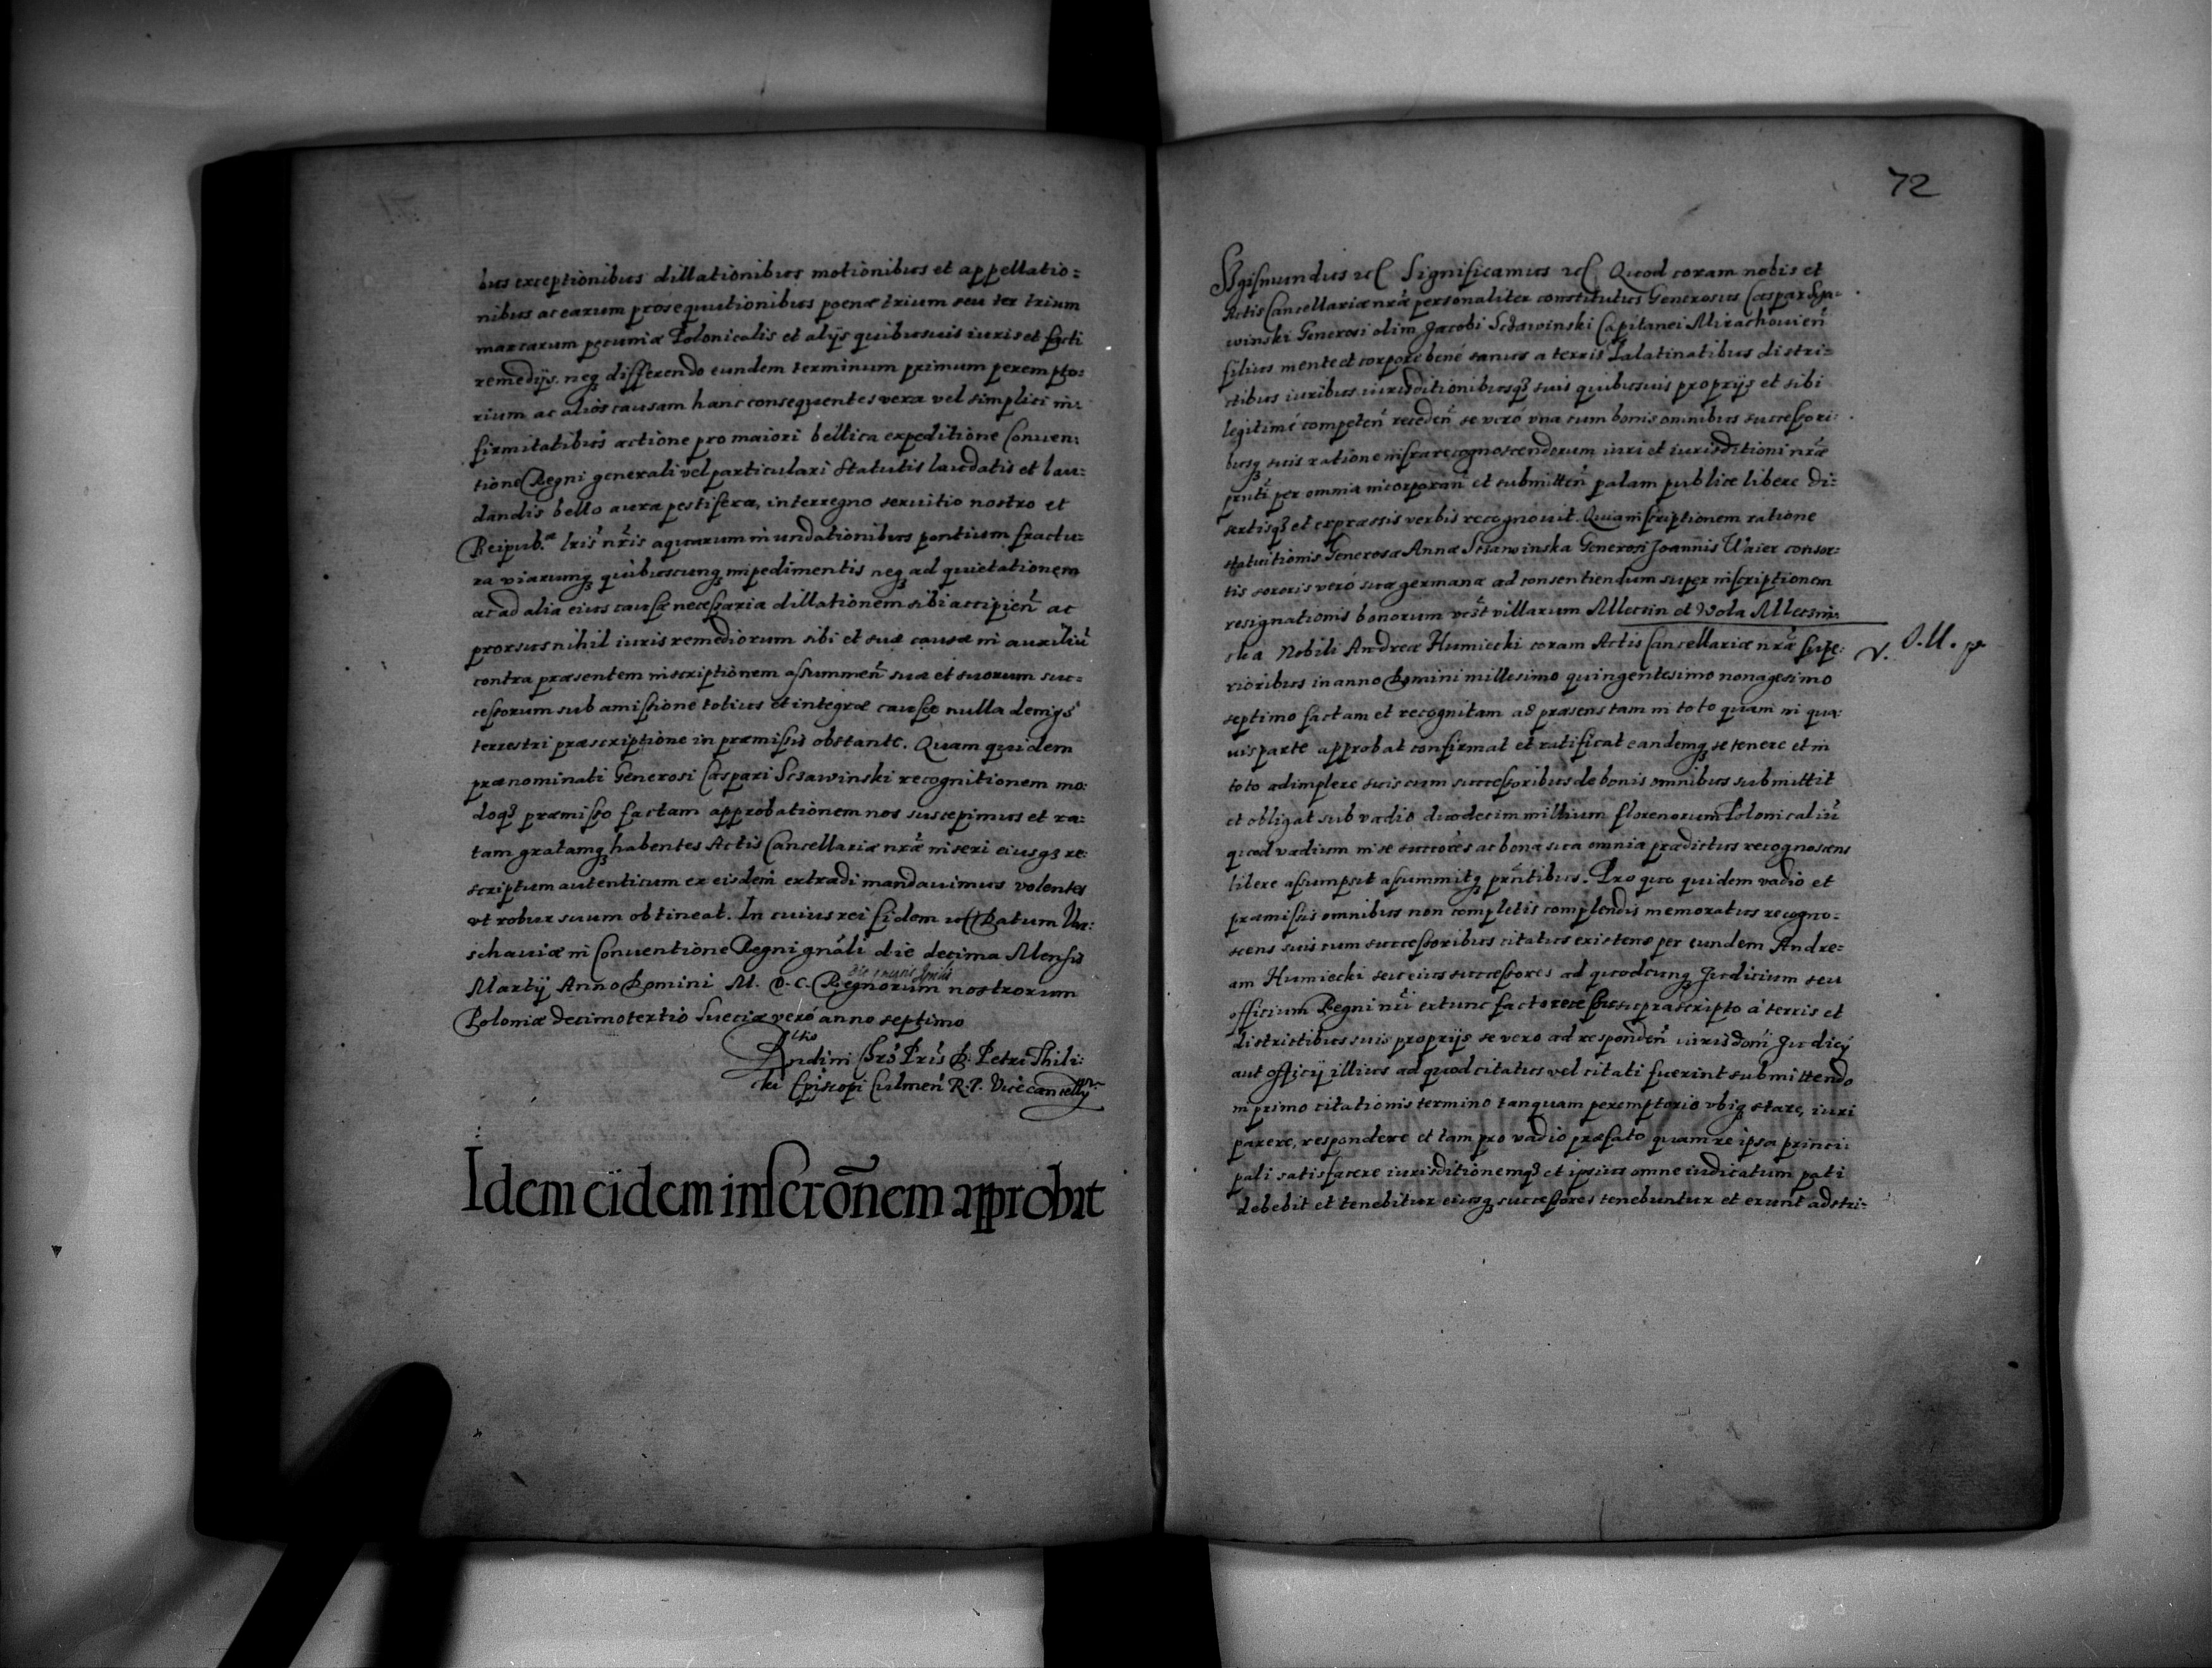 bus exceptionibus dillationibus motionibus et appellatio=
nibus ac earum prosequutionibus poenæ trium seu ter trium
marcarum pecuniæ Polonicalis et alijs quibusuis iuris et facti
remedijs. neq differendo eundem terminum primum perempto:
rium ac alios causam hanc consequentes vera vel simplici in:
firmitatibus actione pro maiori bellica expeditione Conuen:
tione Regni generali vel particulari Statutis laudatis et lau=
dandis bello aura pestifera, interregno seruitio nostro et
Reipub.æ lris nris aquarum inundationibus pontium fractu=
ra viarumq quibuscunq impedimentis neq ad quietationem
ac ad alia eius causæ necessaria dillationem sibi accipien ac
prorsus nihil iuris remediorum sibi et suæ causæ in auxiliū
contra præsentem inscriptionem assummen suæ et suorum suc=
cessorum sub amissione totius et integræ causæ nulla deniqs
terrestri præscriptione in præmissis obstante. Quam quidem
prænominati Generosi Caspari Sczawinski recognitionem mo:
doq præmisso factam approbationem nos suscepimus et ra:
tam gratamq habentes Actis Cancellariæ nræ inseri eiusq re:
scriptum autenticum ex eisdem extradi mandauimus volentes
vt robur suum obtineat. In cuius rei fidem etc Datum Var:
schauiæ in Conuentione Regni gnali die decima Mensis
Martij Anno Domini M. D. C. Regnorum nostrorum
Poloniæ decimotertio Sueciæ veró anno septimo
Rltio
Rndimi Chro Pris D. Petri Thili:
cki Episcopi Culmen R. P. Vicecancellrij
Idem eidem inscrōnem approbat
72
Sigismundus etc Significamus etc Quod coram nobis et
Actis Cancellariæ nræ personaliter constitutus Generosus Caspar Scza=
winski Generosi olim Jacobi Sczawinski Capitanei Mirachouien
filius mente et corpore bené sanus a terris Palatinatibus distri=
ctibus iuribus iurisditionibusq suis quibusuis proprijs et sibi
legitimé competen receden se veró vna cum bonis omnibus successori:
busq suis ratione infrarecognoscendorum iuri et iurisditioni nræ
prnti per omnia incorporan et submitten palam publice libere di=
sertisq et expressis verbis recognouit. Quia inscriptionem ratione
statuitionis Generosæ Annæ Sczawinska Generosi Joannis Waier consor:
tis sororis veró suæ germanæ ad consentiendum super inscriptionem
resignationis bonorum vest villarum Mlecsin et Wola Mlecsin:
ska Nobili Andreæ Humiecki coram Actis Cancellariæ nræ supe:
V. O. M. p
rioribus in anno Domini millesimo quingentesimo nonagesimo
septimo factam et recognitam ad præsens tam in toto quam in qua:
uis parte approbat confirmat et ratificat eandemq se tenere et in
toto adimplere suis cum successoribus de bonis omnibus submittit
et obligat sub vadio duodecim millium florenorum Polonicaliū
quod vadium in se succores ac bona sua omnia prædictus recognoscens
libere assumpsit assummitq prntibus. Pro quo quidem vadio et
præmissis omnibus non completis complendis memoratus recogno=
scens suis cum successoribus citatus existens per eundem Andre=
am Humiecki seu eius successores ad quodcunq Judicium seu
officium Regni nri extunc facto recessu supra scripto á terris et
districtibus suis proprijs se vero ad responden iurisdoni Judicij
aut officij illius ad quod citatus vel citati fuerint submittendo
in primo citationis termino tanquam peremptorio vbiq stare, iuri
parere, respondere et tam pro vadio præfato quam re ipsa princi:
pali satisfacere iurisditionemq et ipsius omne iudicatum pati
debebit et tenebitur eiusq successores tenebuntur et erunt adstri=